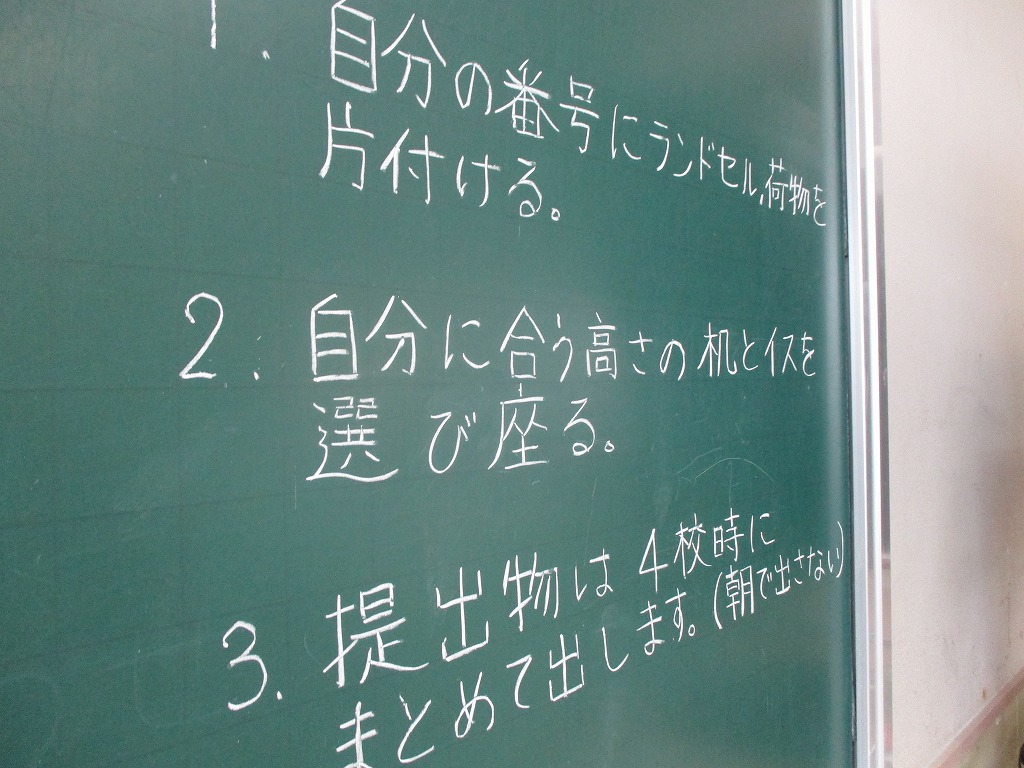 1. 自分の番号にランドセル,荷物を
片付ける。
2. 自分に合う高さの机とイスを
選び座る。
3. 提出物は4校時に
まとめて出します。(朝で出さない)